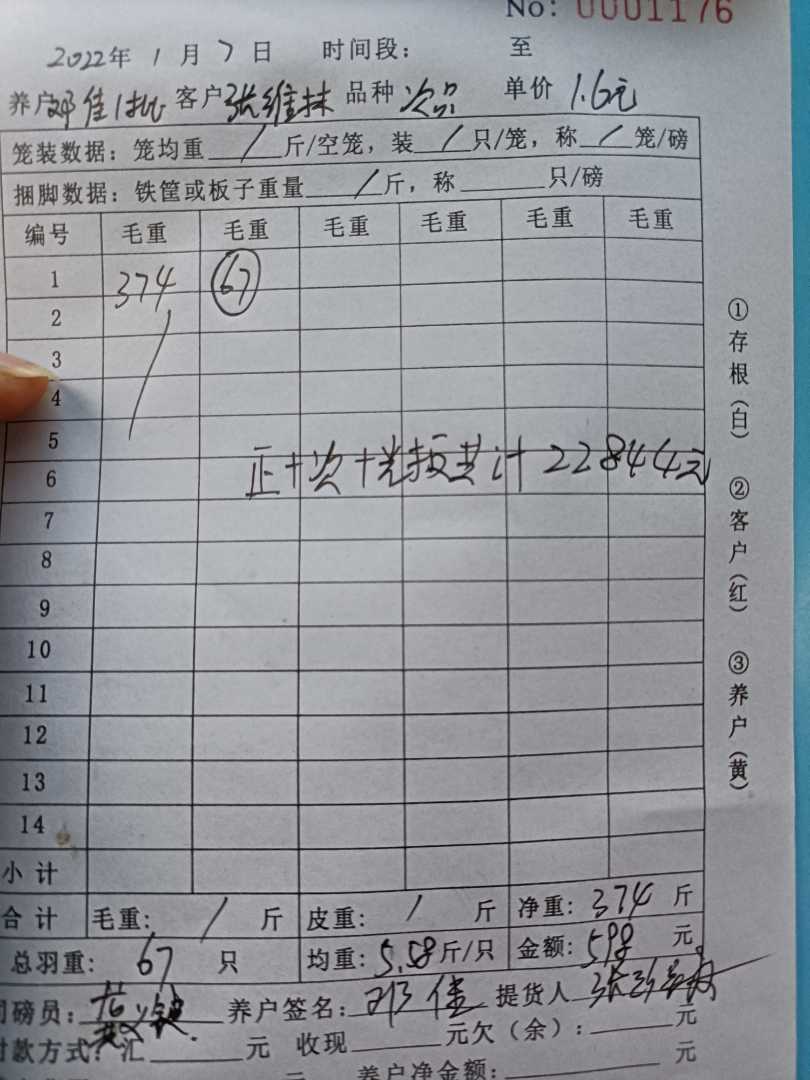 No: 0001176
2022年 1 月 7 日 时间段: 至
养户 邓佳1批 客户 张维林 品种 次品 单价 1.6元
笼装数据: 笼均重 / 斤/空笼, 装 / 只/笼, 称 / 笼/磅
捆脚数据: 铁筐或板子重量 / 斤, 称 只/磅
编号 毛重 毛重 毛重 毛重 毛重 毛重
1 374 67
2
3
4
5
6 正+次+光板共计 22844元
7
8
9
10
11
12
13
14
小计
合计 毛重: / 斤 皮重: / 斤 净重: 374 斤
总羽重: 67 只 均重: 5.58 斤/只 金额: 598 元
司磅员: 养户签名: 邓佳 提货人
付款方式: 汇 元 收现 元欠(余): 元
元 养户净金额: 元
①存根(白) ②客户(红) ③养户(黄)